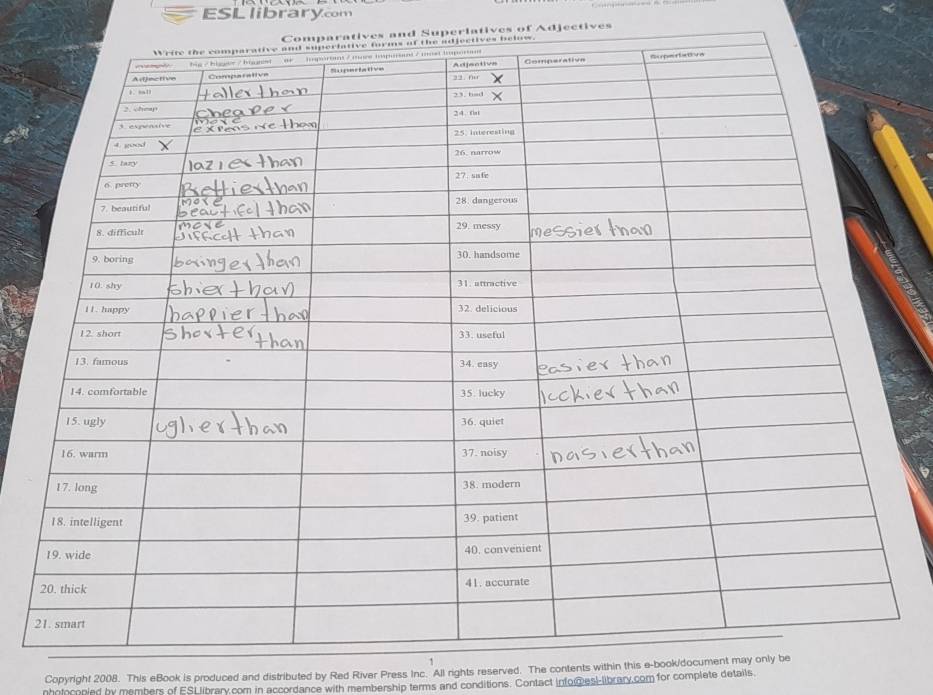 ESL library.com
Comparatives and Superlatives of Adjectives
Write the comparative and superlative forms of the adjectives below.
example: big / bigger / biggest or important / more important / most important
Adjective Comparative Superlative Adjective Comparative Superlative
1. tall taller than 22. far X
2. cheap cheaper 23. bad X
3. expensive more expensive than 24. flat
4. good X 25. interesting
5. lazy lazier than 26. narrow
6. pretty Prettier than 27. safe
7. beautiful more beautifcl than 28. dangerous
8. difficult more difficclt than 29. messy messier than
9. boring boringer than 30. handsome
10. shy shier than 31. attractive
11. happy happier than 32. delicious
12. short shorter than 33. useful
13. famous - 34. easy easier than
14. comfortable 35. lucky lcckier than
15. ugly uglier than 36. quiet
16. warm 37. noisy nasier than
17. long 38. modern
18. intelligent 39. patient
19. wide 40. convenient
20. thick 41. accurate
21. smart
1
Copyright 2008. This eBook is produced and distributed by Red River Press Inc. All rights reserved. The contents within this e-book/document may only be
photocopied by members of ESLlibrary.com in accordance with membership terms and conditions. Contact info@esl-library.com for complete details.